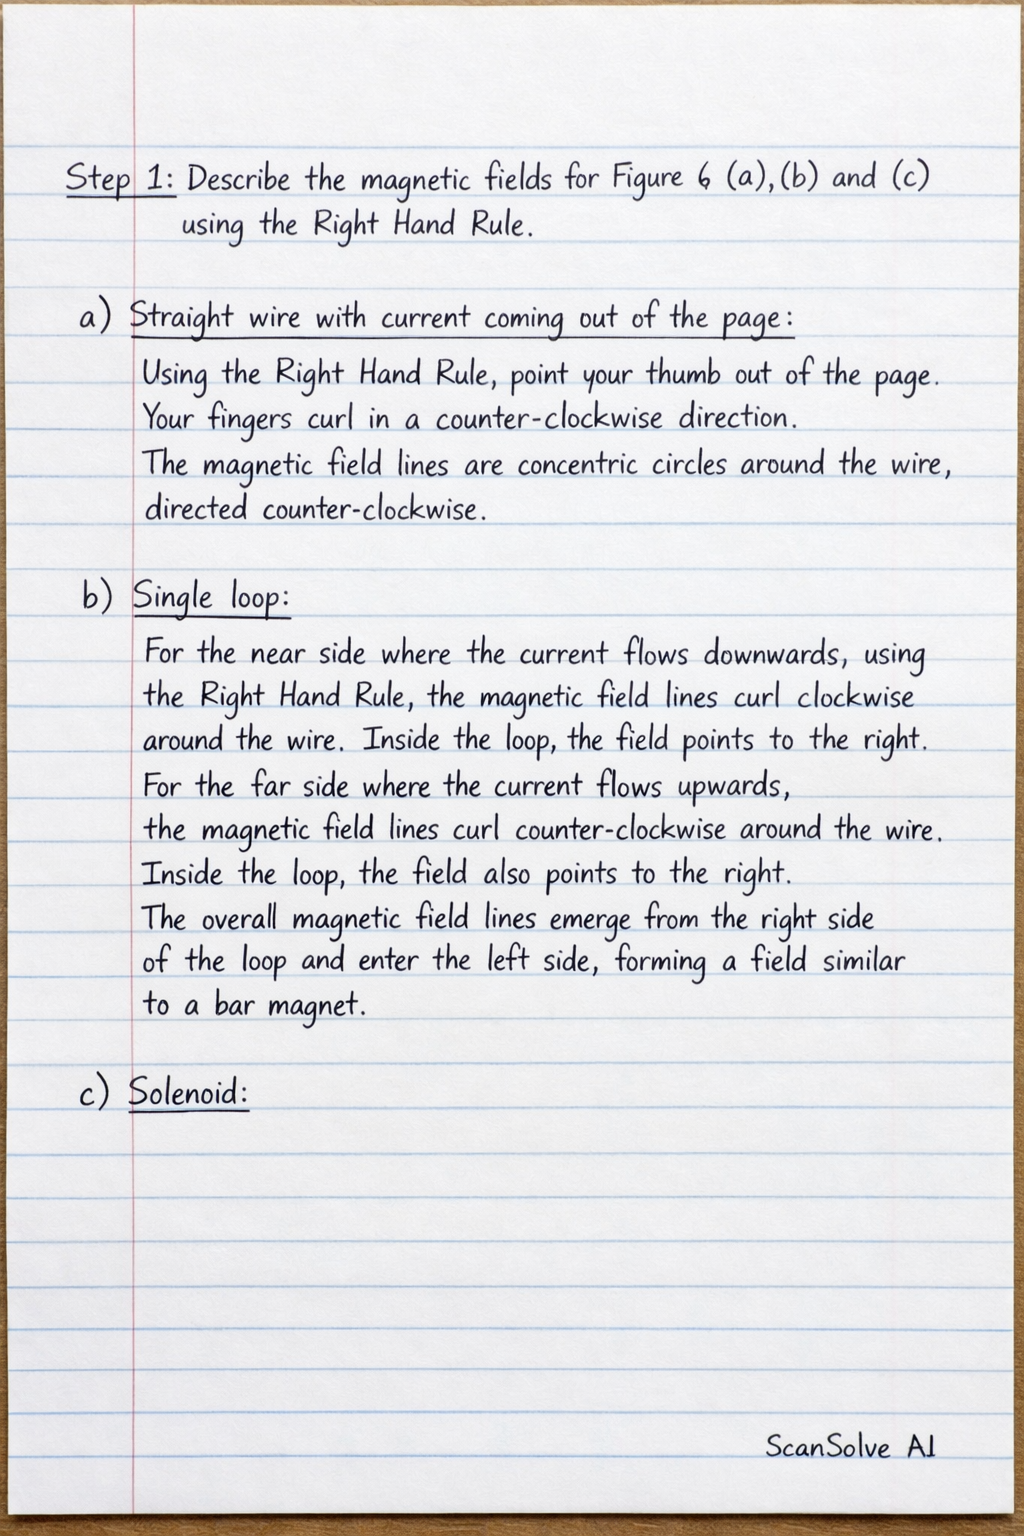 Step 1: Describe the magnetic fields for Figure 6 (a), (b) and (c)
using the Right Hand Rule.
a) Straight wire with current coming out of the page:
Using the Right Hand Rule, point your thumb out of the page.
Your fingers curl in a counter-clockwise direction.
The magnetic field lines are concentric circles around the wire,
directed counter-clockwise.
b) Single loop:
For the near side where the current flows downwards, using
the Right Hand Rule, the magnetic field lines curl clockwise
around the wire. Inside the loop, the field points to the right.
For the far side where the current flows upwards,
the magnetic field lines curl counter-clockwise around the wire.
Inside the loop, the field also points to the right.
The overall magnetic field lines emerge from the right side
of the loop and enter the left side, forming a field similar
to a bar magnet.
c) Solenoid:
ScanSolve AI